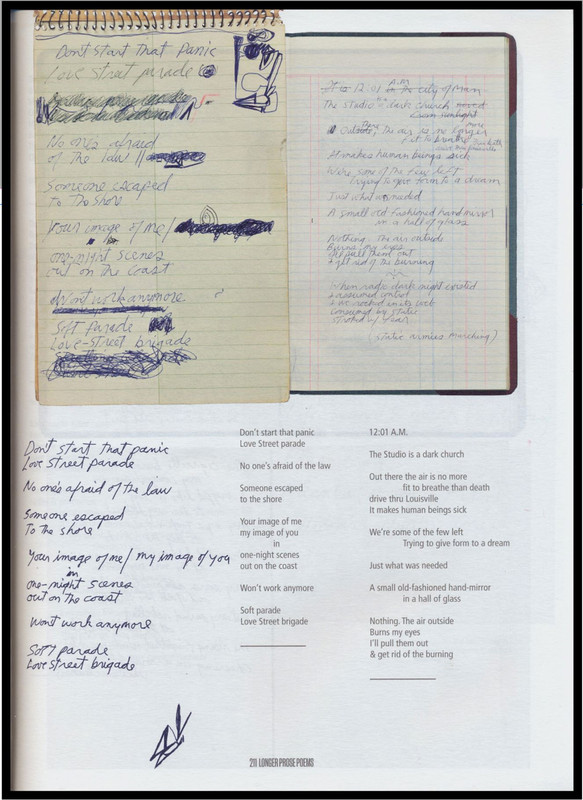 Don't start that panic
Love Street parade
No one's afraid
of the law //
Someone escaped
to The shore
Your image of me/
in
one-night scenes
out on The coast
Won't work anymore
Soft parade
Love-Street brigade
It is 12:01 A.M. in The City of Man
The Studio is a dark church
Out There The air is no longer
fit to breathe
It makes human beings sick
We're some of the few left
trying to give form to a dream
Just what was needed
A small old fashioned hand mirror
in a hall of glass
Nothing. The air outside
Burns my eyes
I'll pull them out
& get rid of the burning
When radio dark night existed
& assumed control
& we rocked in its web
Consumed by static
stroked w/ fear
(static armies marching)
Don't start that panic
Love Street parade
No one's afraid of the law
Someone escaped
To The shore
Your image of me/my image of you
in
one-night scenes
out on The coast
Wont work anymore
Soft parade
Love street brigade
Don't start that panic
Love Street parade
No one's afraid of the law
Someone escaped
to the shore
Your image of me
my image of you
in
one-night scenes
out on the coast
Won't work anymore
Soft parade
Love Street brigade
12:01 A.M.
The Studio is a dark church
Out there the air is no more
fit to breathe than death
drive thru Louisville
It makes human beings sick
We're some of the few left
Trying to give form to a dream
Just what was needed
A small old-fashioned hand-mirror
in a hall of glass
Nothing. The air outside
Burns my eyes
I'll pull them out
& get rid of the burning
211 LONGER PROSE POEMS